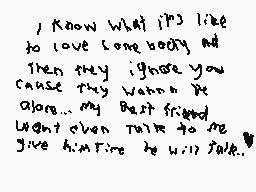 I know what it's like
to love somebody but
then they ignore you
cause they wanna be
alone... my best friend
wont even talk to me
give him time he will talk..